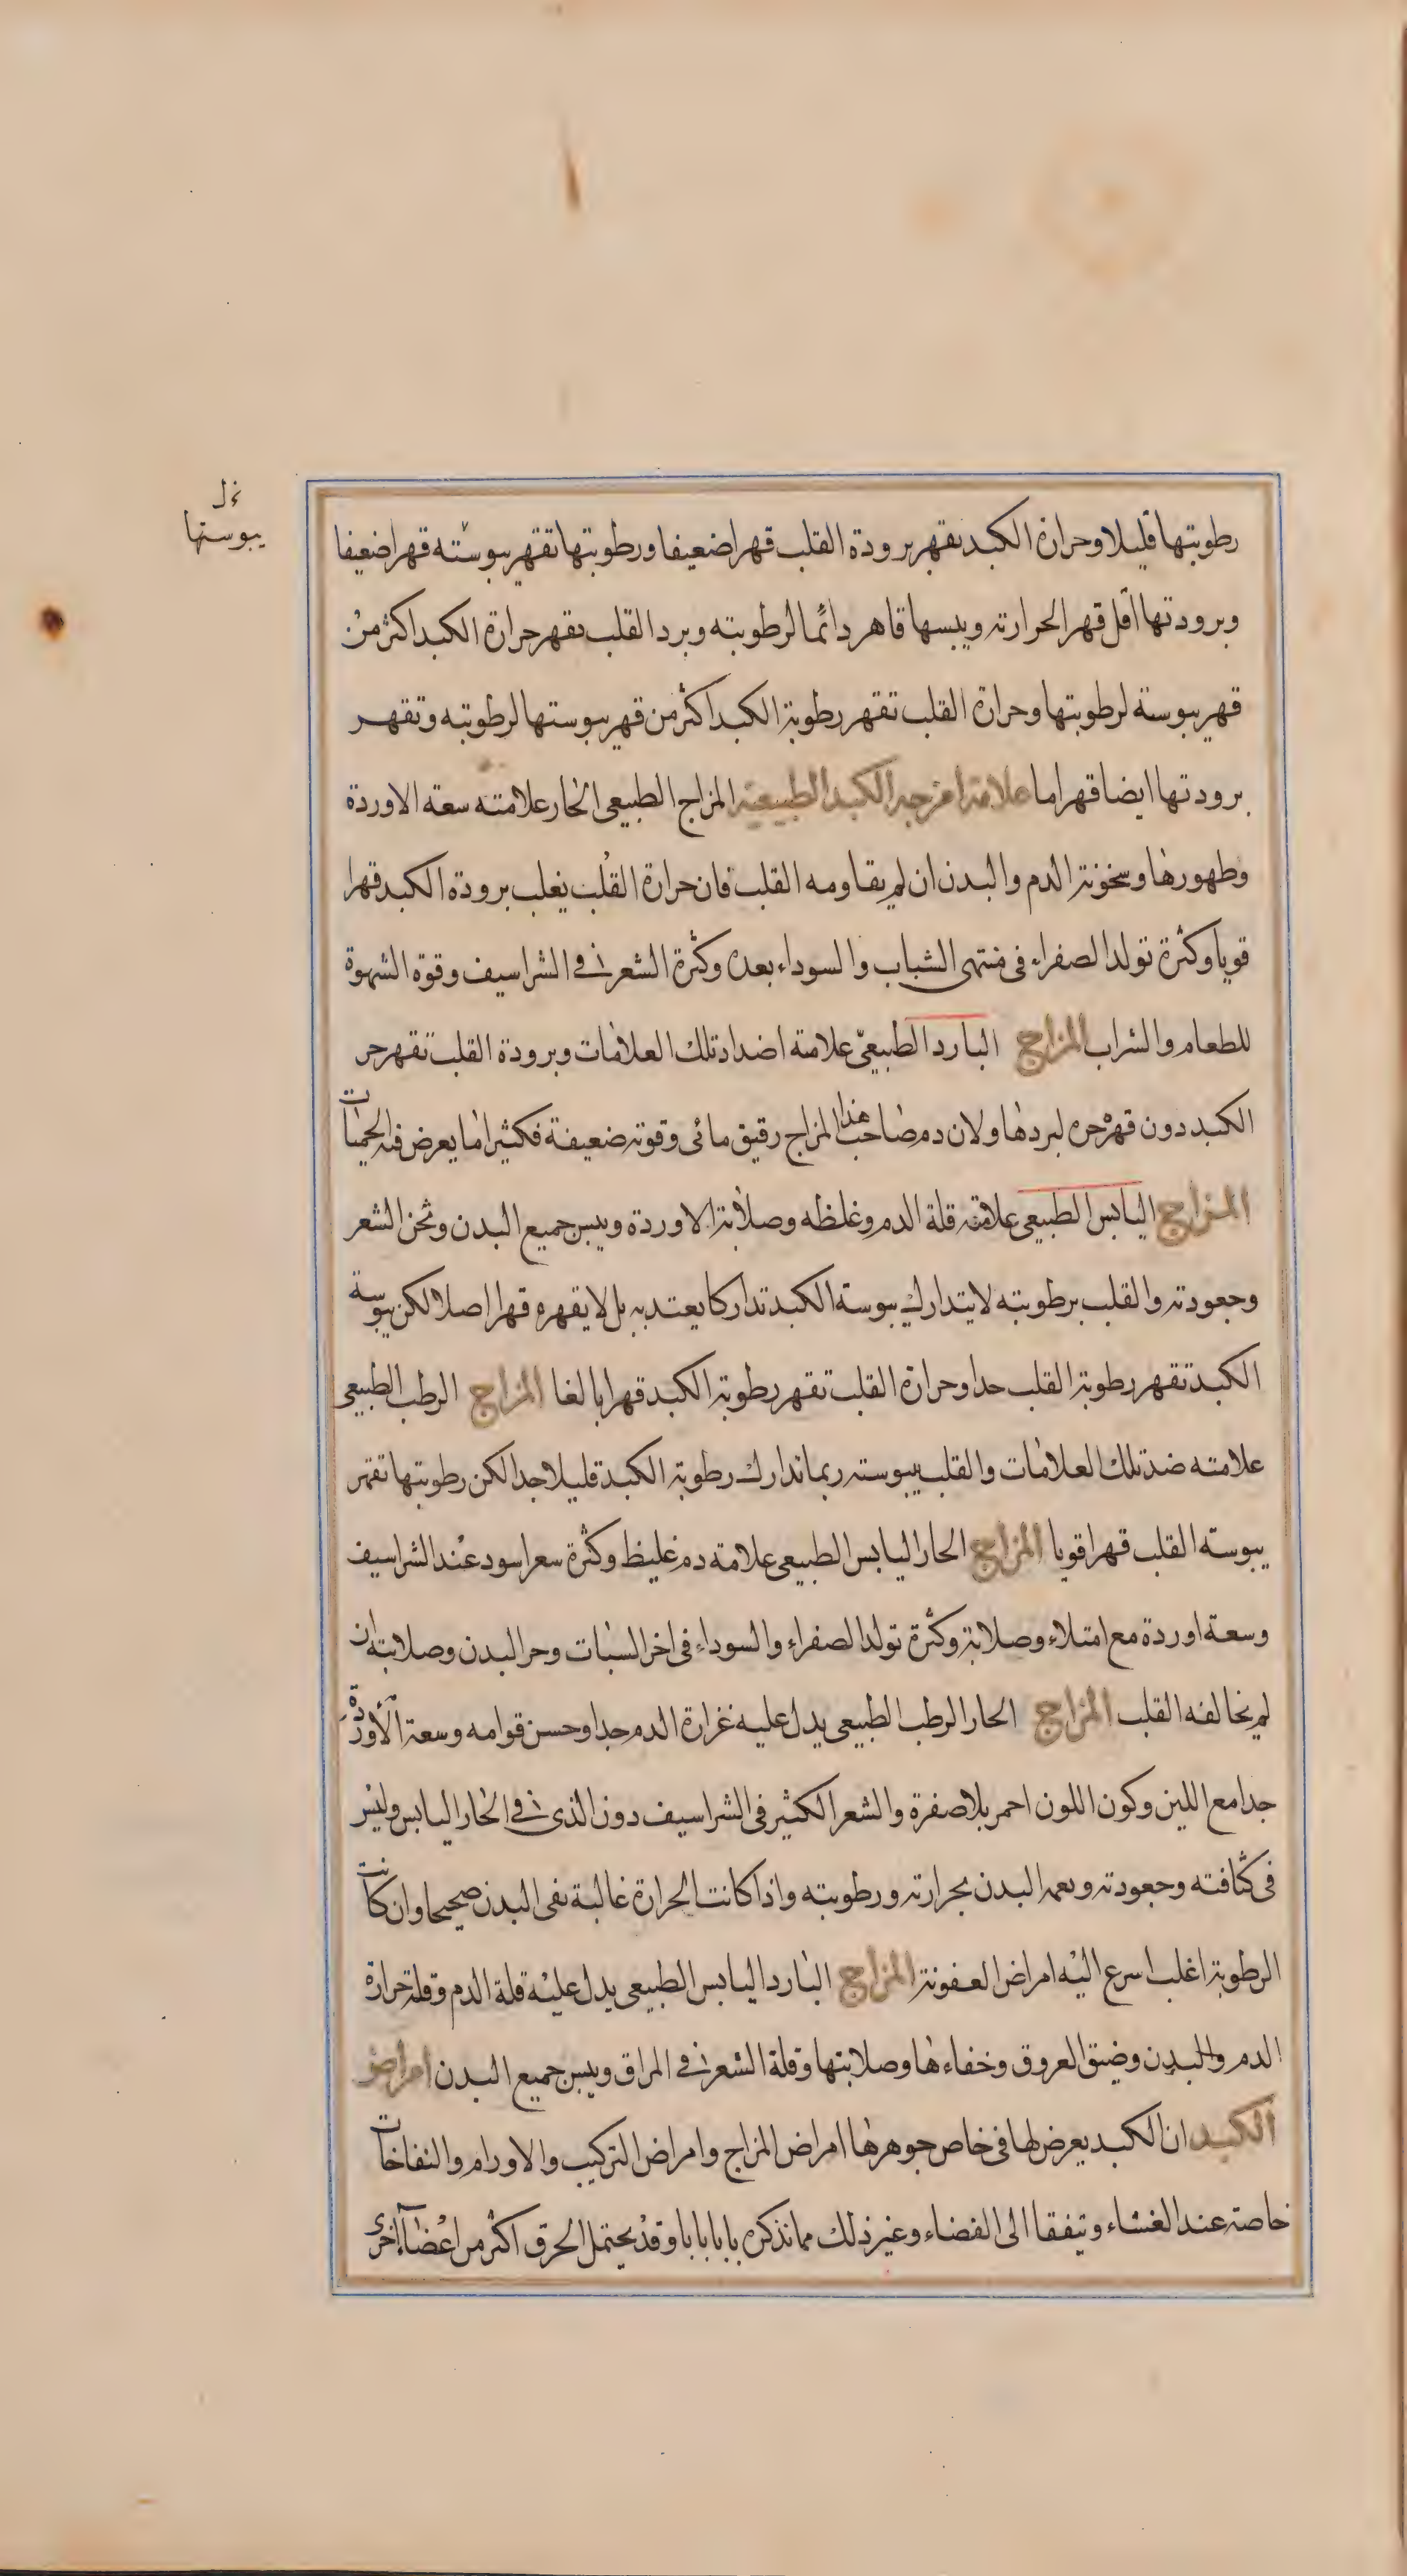 نخ ل
يبوستها
رطوبتها قليلا وحرارة الكبد تقهر برودة القلب قهرا ضعيفا ورطوبتها تقهر يبوسته قهرا ضعيفا
وبرودتها اقل قهر الحرارته ويبسها قاهر دائما لرطوبته وبرد القلب يقهر حرارة الكبد اكثر من
قهر يبوسة لرطوبتها وحرارة القلب تقهر رطوبة الكبد اكثر من قهر يبوستها لرطوبته وتقهر
برودتها ايضا قهرا ما علامة امزجة الكبد الطبيعية المزاج الطبيعى الحار علامته سعة الاوردة
وظهورها وسخونة الدم والبدن ان لم يقاومه القلب فان حرارة القلب يغلب برودة الكبد قهرا
قويا وكثرة تولد الصفراء فى منتهى الشباب والسوداء بعده وكثرة الشعر فى الشراسيف وقوة الشهوة
للطعام والشراب المزاج البارد الطبيعى علامة اضداد تلك العلامات وبرودة القلب تقهر حر
الكبد دون قهر حره لبردها ولان دم صاحب هذا المزاج رقيق مائى وقوته ضعيفة فكثيرا ما يعرض فيه الحميات
المزاج اليابس الطبيعى علامته قلة الدم وغلظه وصلابة الاوردة ويبس جميع البدن وثخن الشعر
وجعودته والقلب برطوبته لا يتدارك يبوسة الكبد تداركا يعتد به بل لا يقهره قهرا اصلا لكن يبوسة
الكبد تقهر رطوبة القلب جدا وحرارة القلب تقهر رطوبة الكبد قهرا بالغا المزاج الرطب الطبيعى
علامته ضد تلك العلامات والقلب بيبوسته ربما تدارك رطوبة الكبد قليلا جدا لكن رطوبتها تقهر
يبوسة القلب قهرا قويا المزاج الحار اليابس الطبيعى علامة دم غليظ وكثرة سعر اسود عند الشراسيف
وسعة اوردة مع امتلاء وصلابة وكثرة تولد الصفراء والسوداء فى اخر الشباب وحر البدن وصلابته ان
لم يخالفه القلب المزاج الحار الرطب الطبيعى يدل عليه غزارة الدم جدا وحسن قوامه وسعة الاوردة
جدا مع اللين وكون اللون احمر بلا صفرة والشعر الكثير فى الشراسيف دون الذى فى الحار اليابس وليس
فى كثافته وجعودته ونعمه البدن بحرارته ورطوبته واذا كانت الحرارة غالبة بقى البدن صحيحا وان كانت
الرطوبة اغلب اسرع اليه امراض العفونة المزاج البارد اليابس الطبيعى يدل عليه قلة الدم وقلة حرارة
الدم والبدن وضيق العروق وخفاءها وصلابتها وقلة الشعر فى المراق ويبس جميع البدن امراض
الكبد ان الكبد يعرض لها فى خاص جوهرها امراض المزاج وامراض التركيب والاورام والنفاخات
خاصة عند الغشاء ويتفقا الى الفضاء وغير ذلك مما نذكره بابا بابا وقد يحتمل الخرق اكثر من اعضاء اخرى